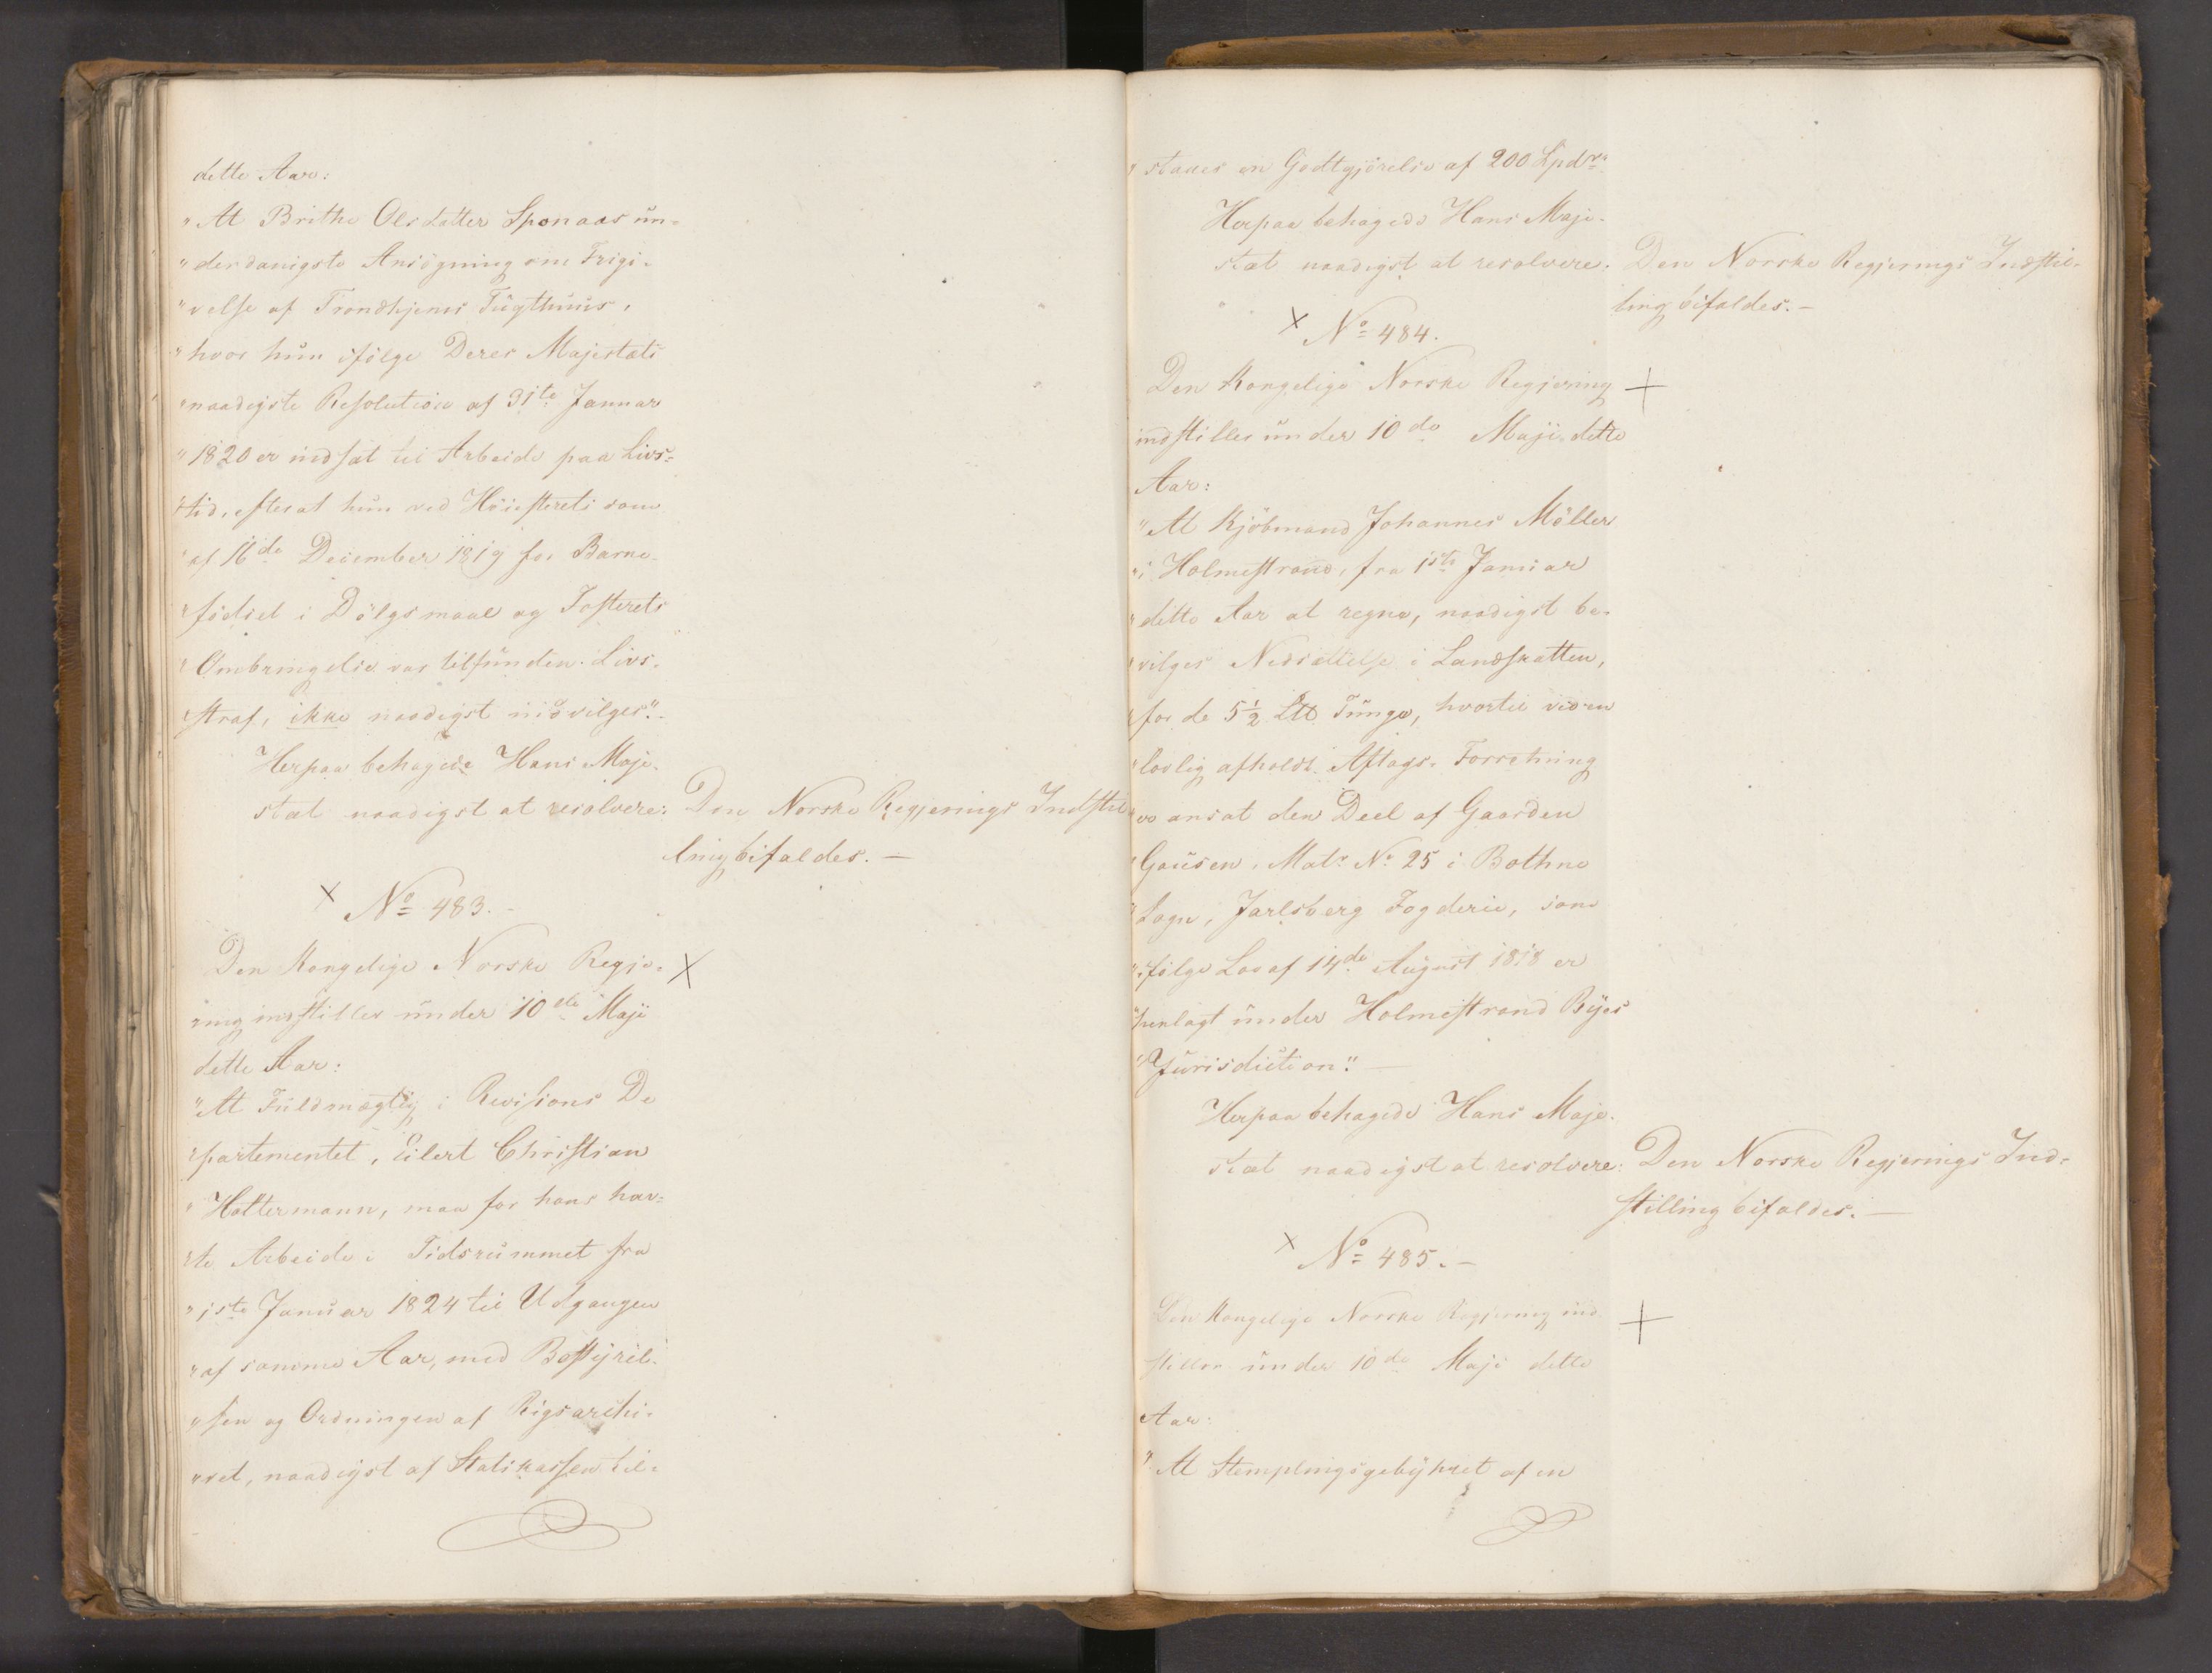 dette Aar:
"At Brithe Olsdatter Sponaas un-
"derdanigste Ansögning om Frigi-
"velse af Trondhjems Tugthuus,
"hvor hun ifölge Deres Majestæts
"naadigste Resolution af 31te Januar
"1820 er indsat til Arbeide paa Livs-
"tid, efterat hun ved Höiesterets Dom
"af 16de December 1819 for Barne-
"födsel i Dölgsmaal og Fosterets
"Ombringelse var tilfunden Livs-
"straf, ikke naadigst indvilges."-
Herpaa behagede Hans Maje-
stæt naadigst at resolvere: Den Norske Regjerings Indstil-
ling bifaldes. —
x No 483. -
Den Kongelige Norske Regje- x
ring indstiller under 10de Maji
dette Aar:
"At Fuldmægtig i Revisions De
"partementet, Eilert Christian
"Holtermann, maa for hans hav-
"te Arbeide i Tidsrummet fra
"1ste Januar 1824 til Udgangen
"af samme Aar, med Bestyrel-
"sen og Ordningen af Rigsarchi-
"vet, naadigst af Statskassen til-
"staaes en Godtgjörelse af 200 Spdr"
Herpaa behagede Hans Maje-
stæt naadigst at resolvere. Den Norske Regjerings Indstil-
ling bifaldes. —
x No 484.
Den Kongelige Norske Regjering +
indstiller under 10de Maji dette
Aar:
"At Kjöbmand Johannes Möller
"i Holmestrand, fra 1ste Januar
"dette Aar at regne, naadigst be-
"vilges Nedsættelse i Landskatten,
"for de 5½ Tunge, hvortil ved en
"lovlig afholdt Aftags-Forretning
er ansat den Deel af Gaarden
"Gausen, Matr No 25 i Bothne
"Sogn, Jarlsberg Fogderie, som
"ifölge Lov af 14de August 1818 er
"henlagt under Holmestrand Byes
"Jurisdiction". —
Herpaa behagede Hans Maje-
stæt naadigst at resolvere: Den Norske Regjerings Ind-
stilling bifaldes. —
x No 485. -
Den Kongelige Norske Regjering ind +
stiller under 10de Maji dette
Aar:
"At Stemplingsgebyhret af en